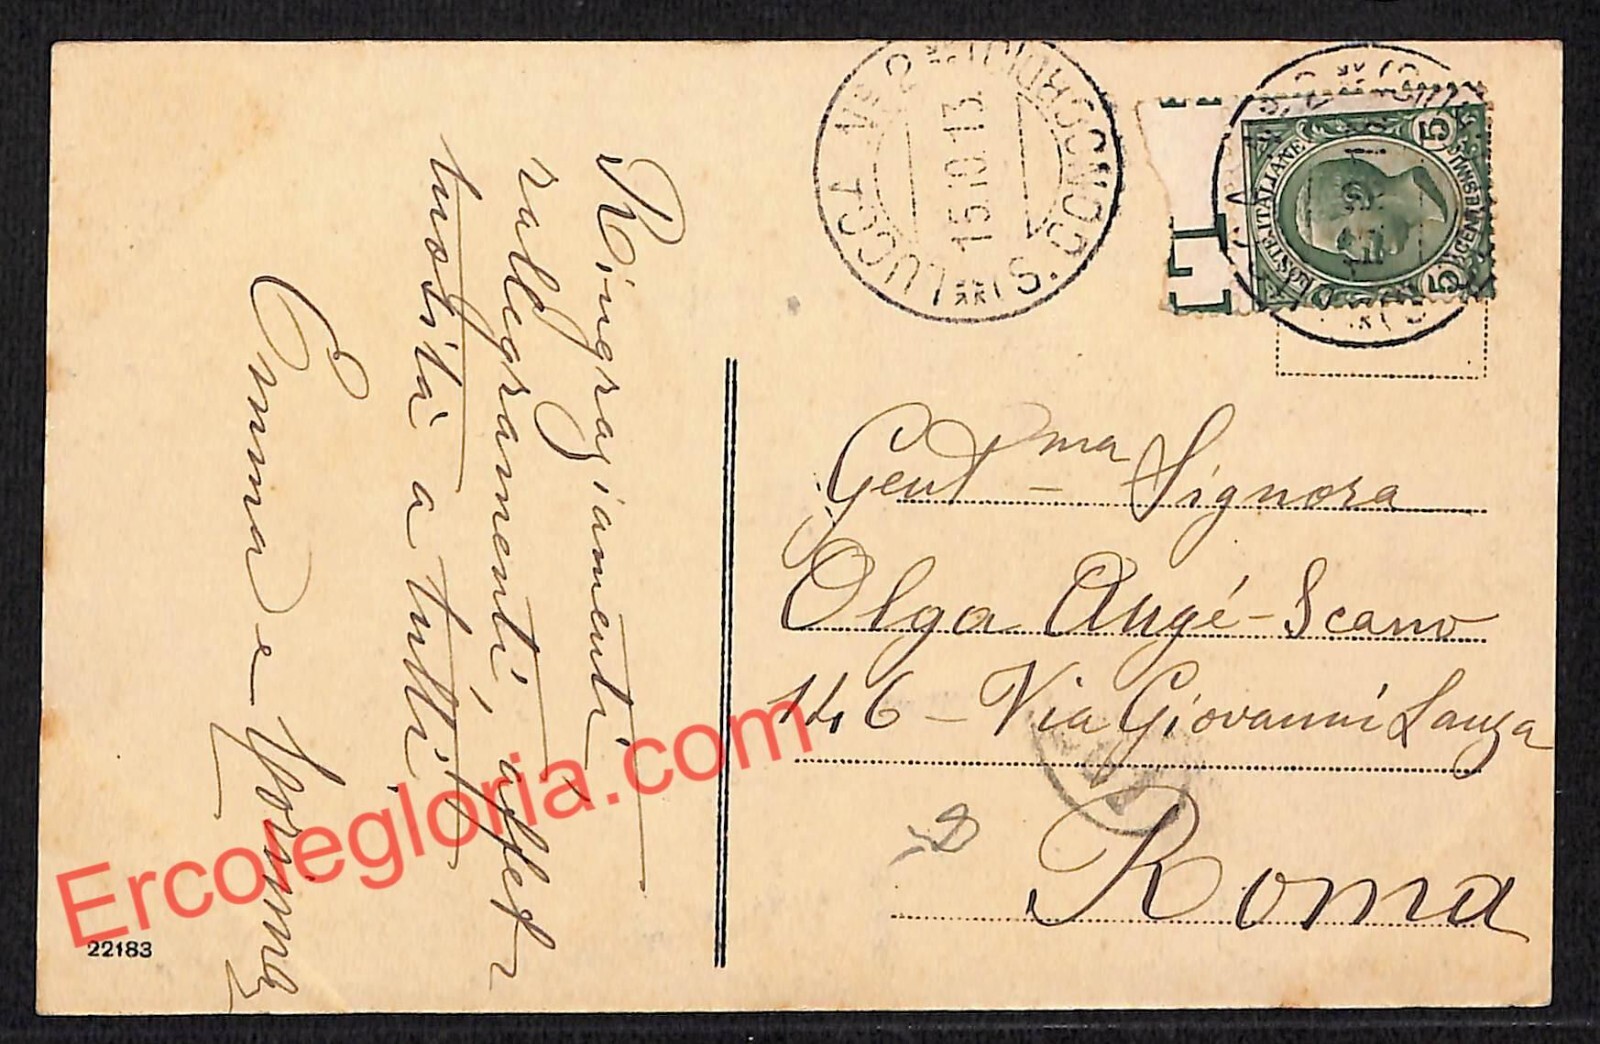 Ringraziamenti
rallegramenti, affet
tuosità a tutti
Emma e
S. CONCORDIO
LUCCA
15.10.13.
POSTE ITALIANE
CENTESIMI
5
5
Gent ma Signora
Olga Angé - Scano
146 - Via Giovanni Lanza
Roma
22183
Ercolegloria.com